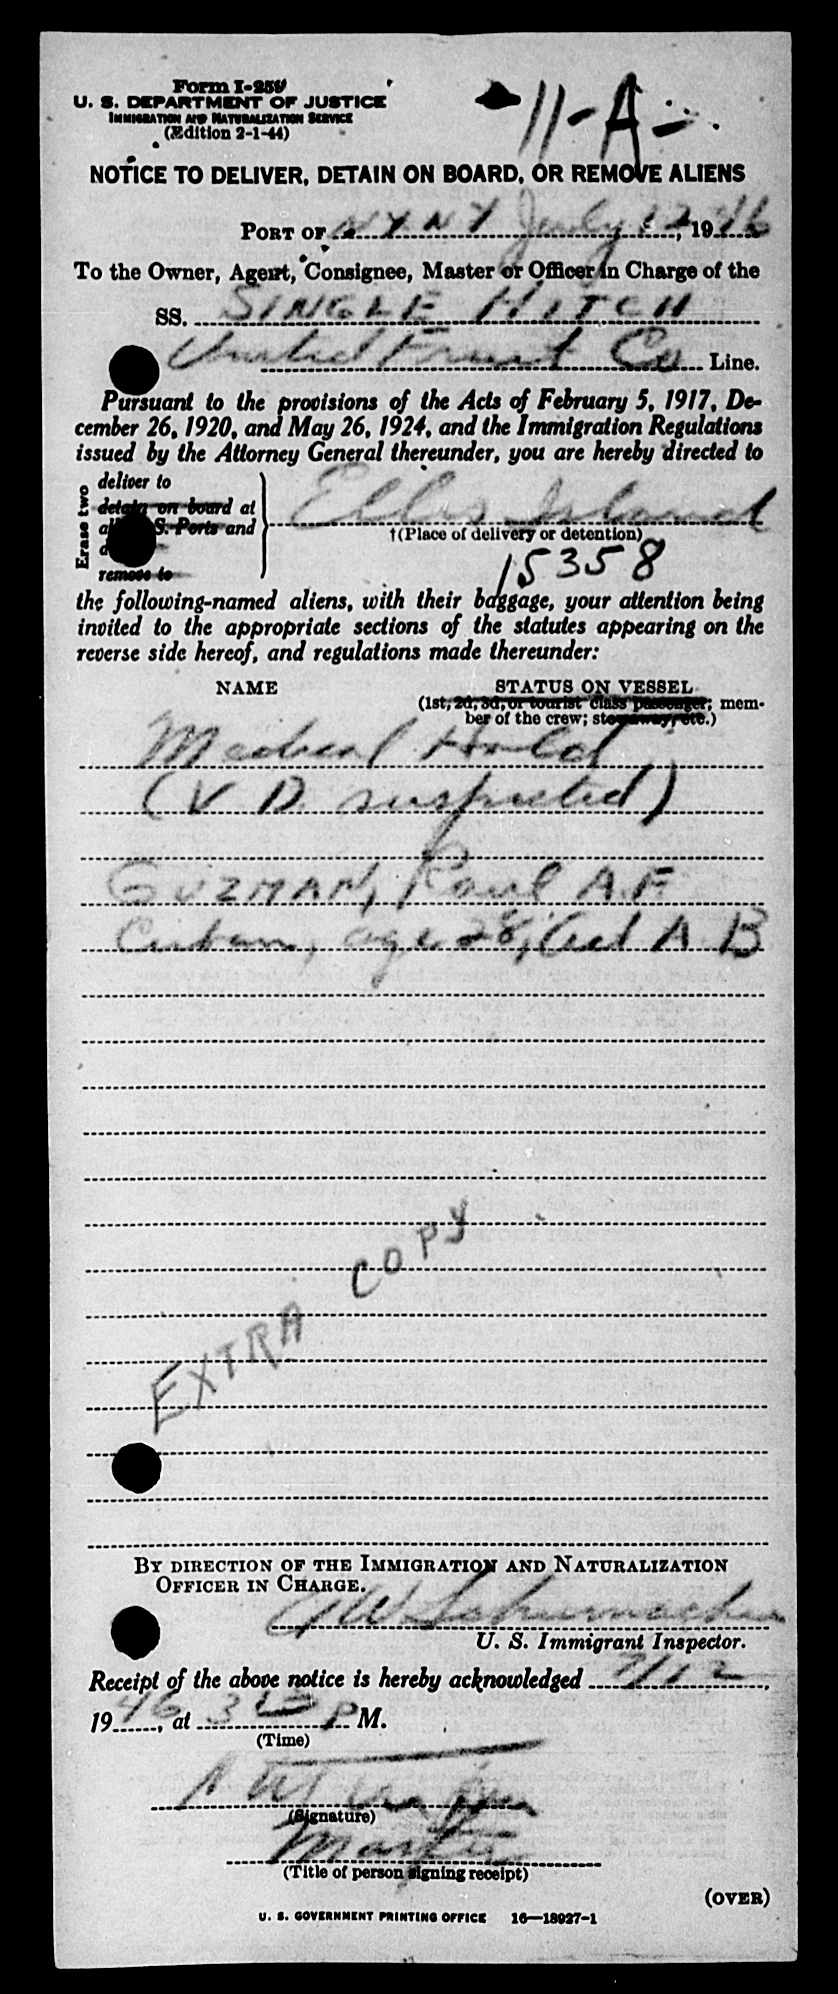 Form I-259
U. S. DEPARTMENT OF JUSTICE
IMMIGRATION AND NATURALIZATION SERVICE
(Edition 2-1-44)
11-A-
NOTICE TO DELIVER, DETAIN ON BOARD, OR REMOVE ALIENS
PORT OF NY NY July 12, 1946
To the Owner, Agent, Consignee, Master or Officer in Charge of the
SS. SINGLE HITCH
United Fruit Co Line.
Pursuant to the provisions of the Acts of February 5, 1917, De-
cember 26, 1920, and May 26, 1924, and the Immigration Regulations
issued by the Attorney General thereunder, you are hereby directed to
Erase two
deliver to
detain on board at
S. Ports and
remove to
Ellis Island
†(Place of delivery or detention)
15358
the following-named aliens, with their baggage, your attention being
invited to the appropriate sections of the statutes appearing on the
reverse side hereof, and regulations made thereunder:
NAME STATUS ON VESSEL
(1st, 2d, 3d, or tourist class passenger; mem-
ber of the crew; stowaway, etc.)
Medical Hold
(V D suspected)
GUZMAN, Raul A.F.
Cuban, age 28, Act A B
EXTRA COPY
BY DIRECTION OF THE IMMIGRATION AND NATURALIZATION
OFFICER IN CHARGE.
W Schumacher
U. S. Immigrant Inspector.
Receipt of the above notice is hereby acknowledged 7/12,
1946, at P M.
(Time)
(Signature)
Master
(Title of person signing receipt)
(OVER)
U. S. GOVERNMENT PRINTING OFFICE 16—18027-1